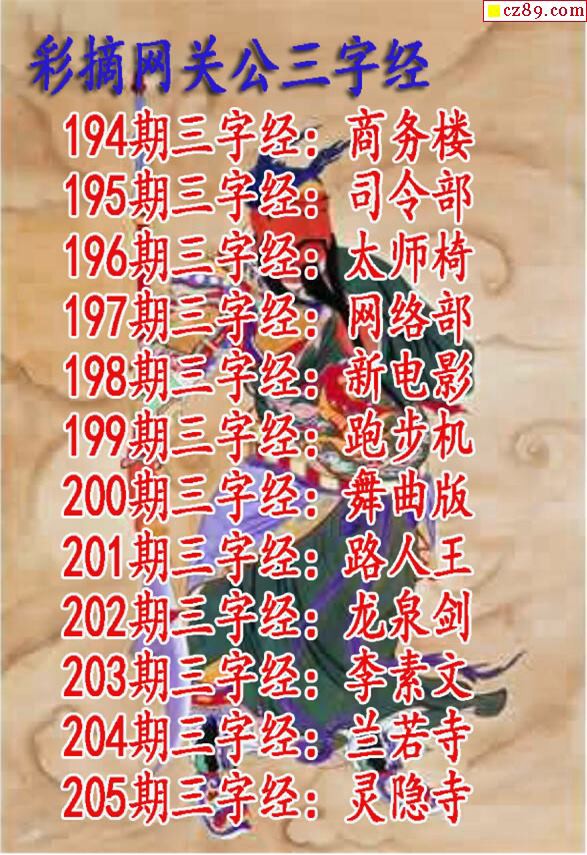 cz89.com
彩摘网关公三字经
194期三字经：商务楼
195期三字经：司令部
196期三字经：太师椅
197期三字经：网络部
198期三字经：新电影
199期三字经：跑步机
200期三字经：舞曲版
201期三字经：路人王
202期三字经：龙泉剑
203期三字经：李素文
204期三字经：兰若寺
205期三字经：灵隐寺